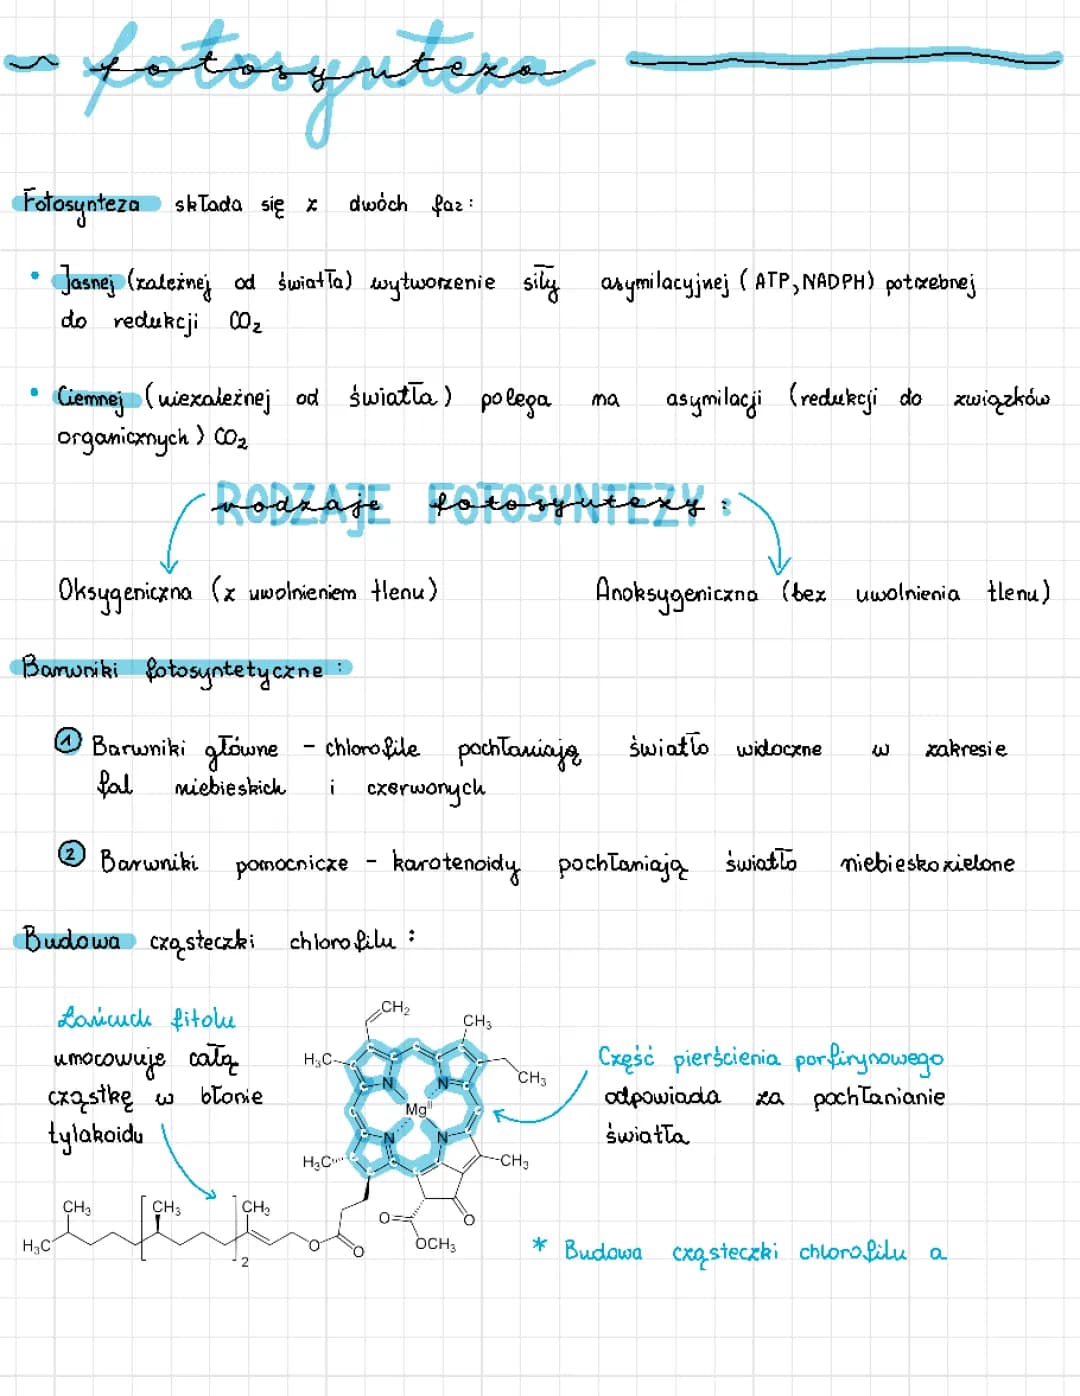 fotosynteza
Fotosynteza składa się z dwóch faz:
• Jasnej (zależnej od światła) wytworzenie siły asymilacyjnej (ATP, NADPH) potrzebnej
do redukcji CO₂
• Ciemnej (niezależnej od światła) polega na asymilacji (redukcji do związków
organicznych) CO₂
RODZAJE FOTOSYNTEZY:
rodzaje fotosyntezy
Oksygeniczna (z uwolnieniem tlenu) Anoksygeniczna (bez uwolnienia tlenu)
Barwniki fotosyntetyczne:
1 Barwniki główne - chlorofile pochłaniają światło widoczne w zakresie
fal niebieskich i czerwonych
2 Barwniki pomocnicze - karotenoidy pochłaniają światło niebieskozielone
Budowa cząsteczki chlorofilu:
Łańcuch fitolu
umocowuje całą
cząstkę w błonie
tylakoidu
CH₂
CH₃
H₃C
CH₃
N N
Mg^II
N N
H₃C
CH₃
Część pierścienia porfirynowego
odpowiada za pochłanianie
światła
CH₃ CH₃ CH₃
H₃C
2
O O
O O
OCH₃
* Budowa cząsteczki chlorofilu a